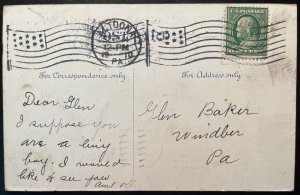 ALTOONA
OCT
12-PM
PA
U.S. POSTAGE
For Correspondence only
For Address only
Dear Glen
I suppose you
are a liny
boy. I would
like to see you
aunt
Glen Baker
Windber
Pa